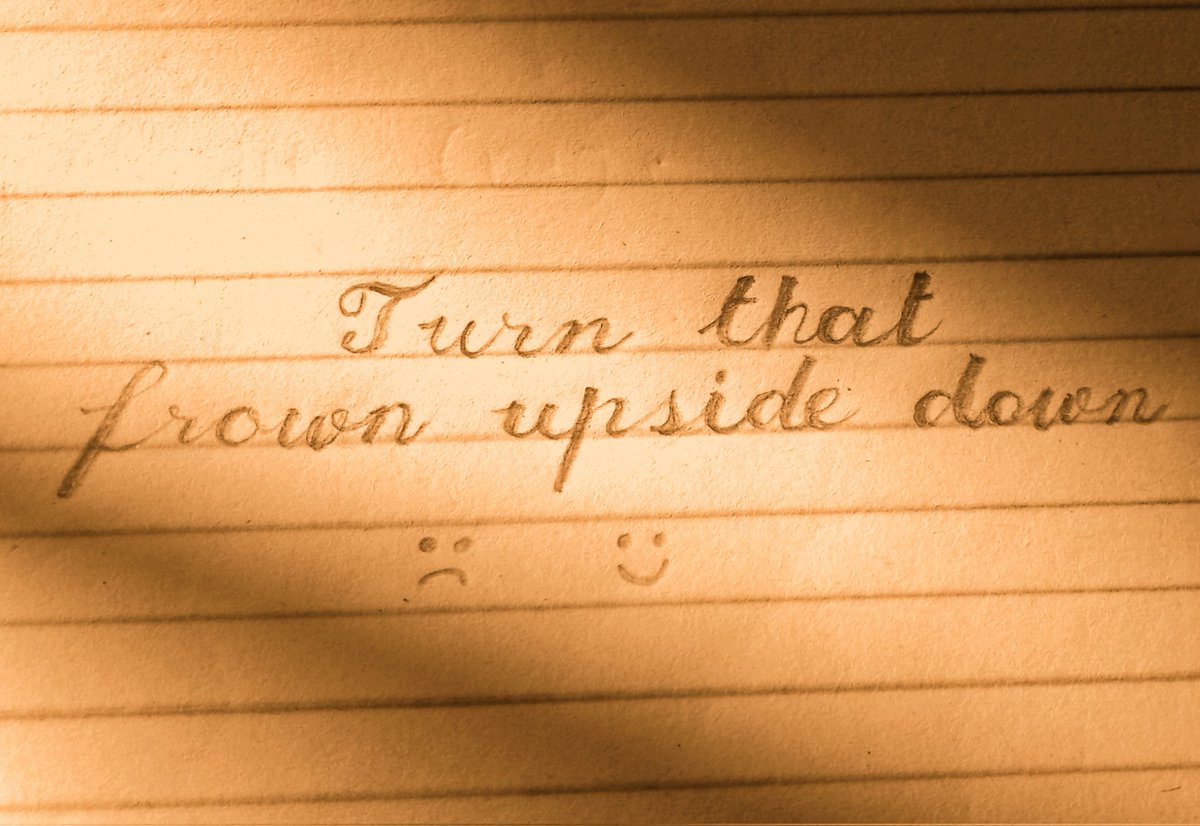 Turn that
frown upside down